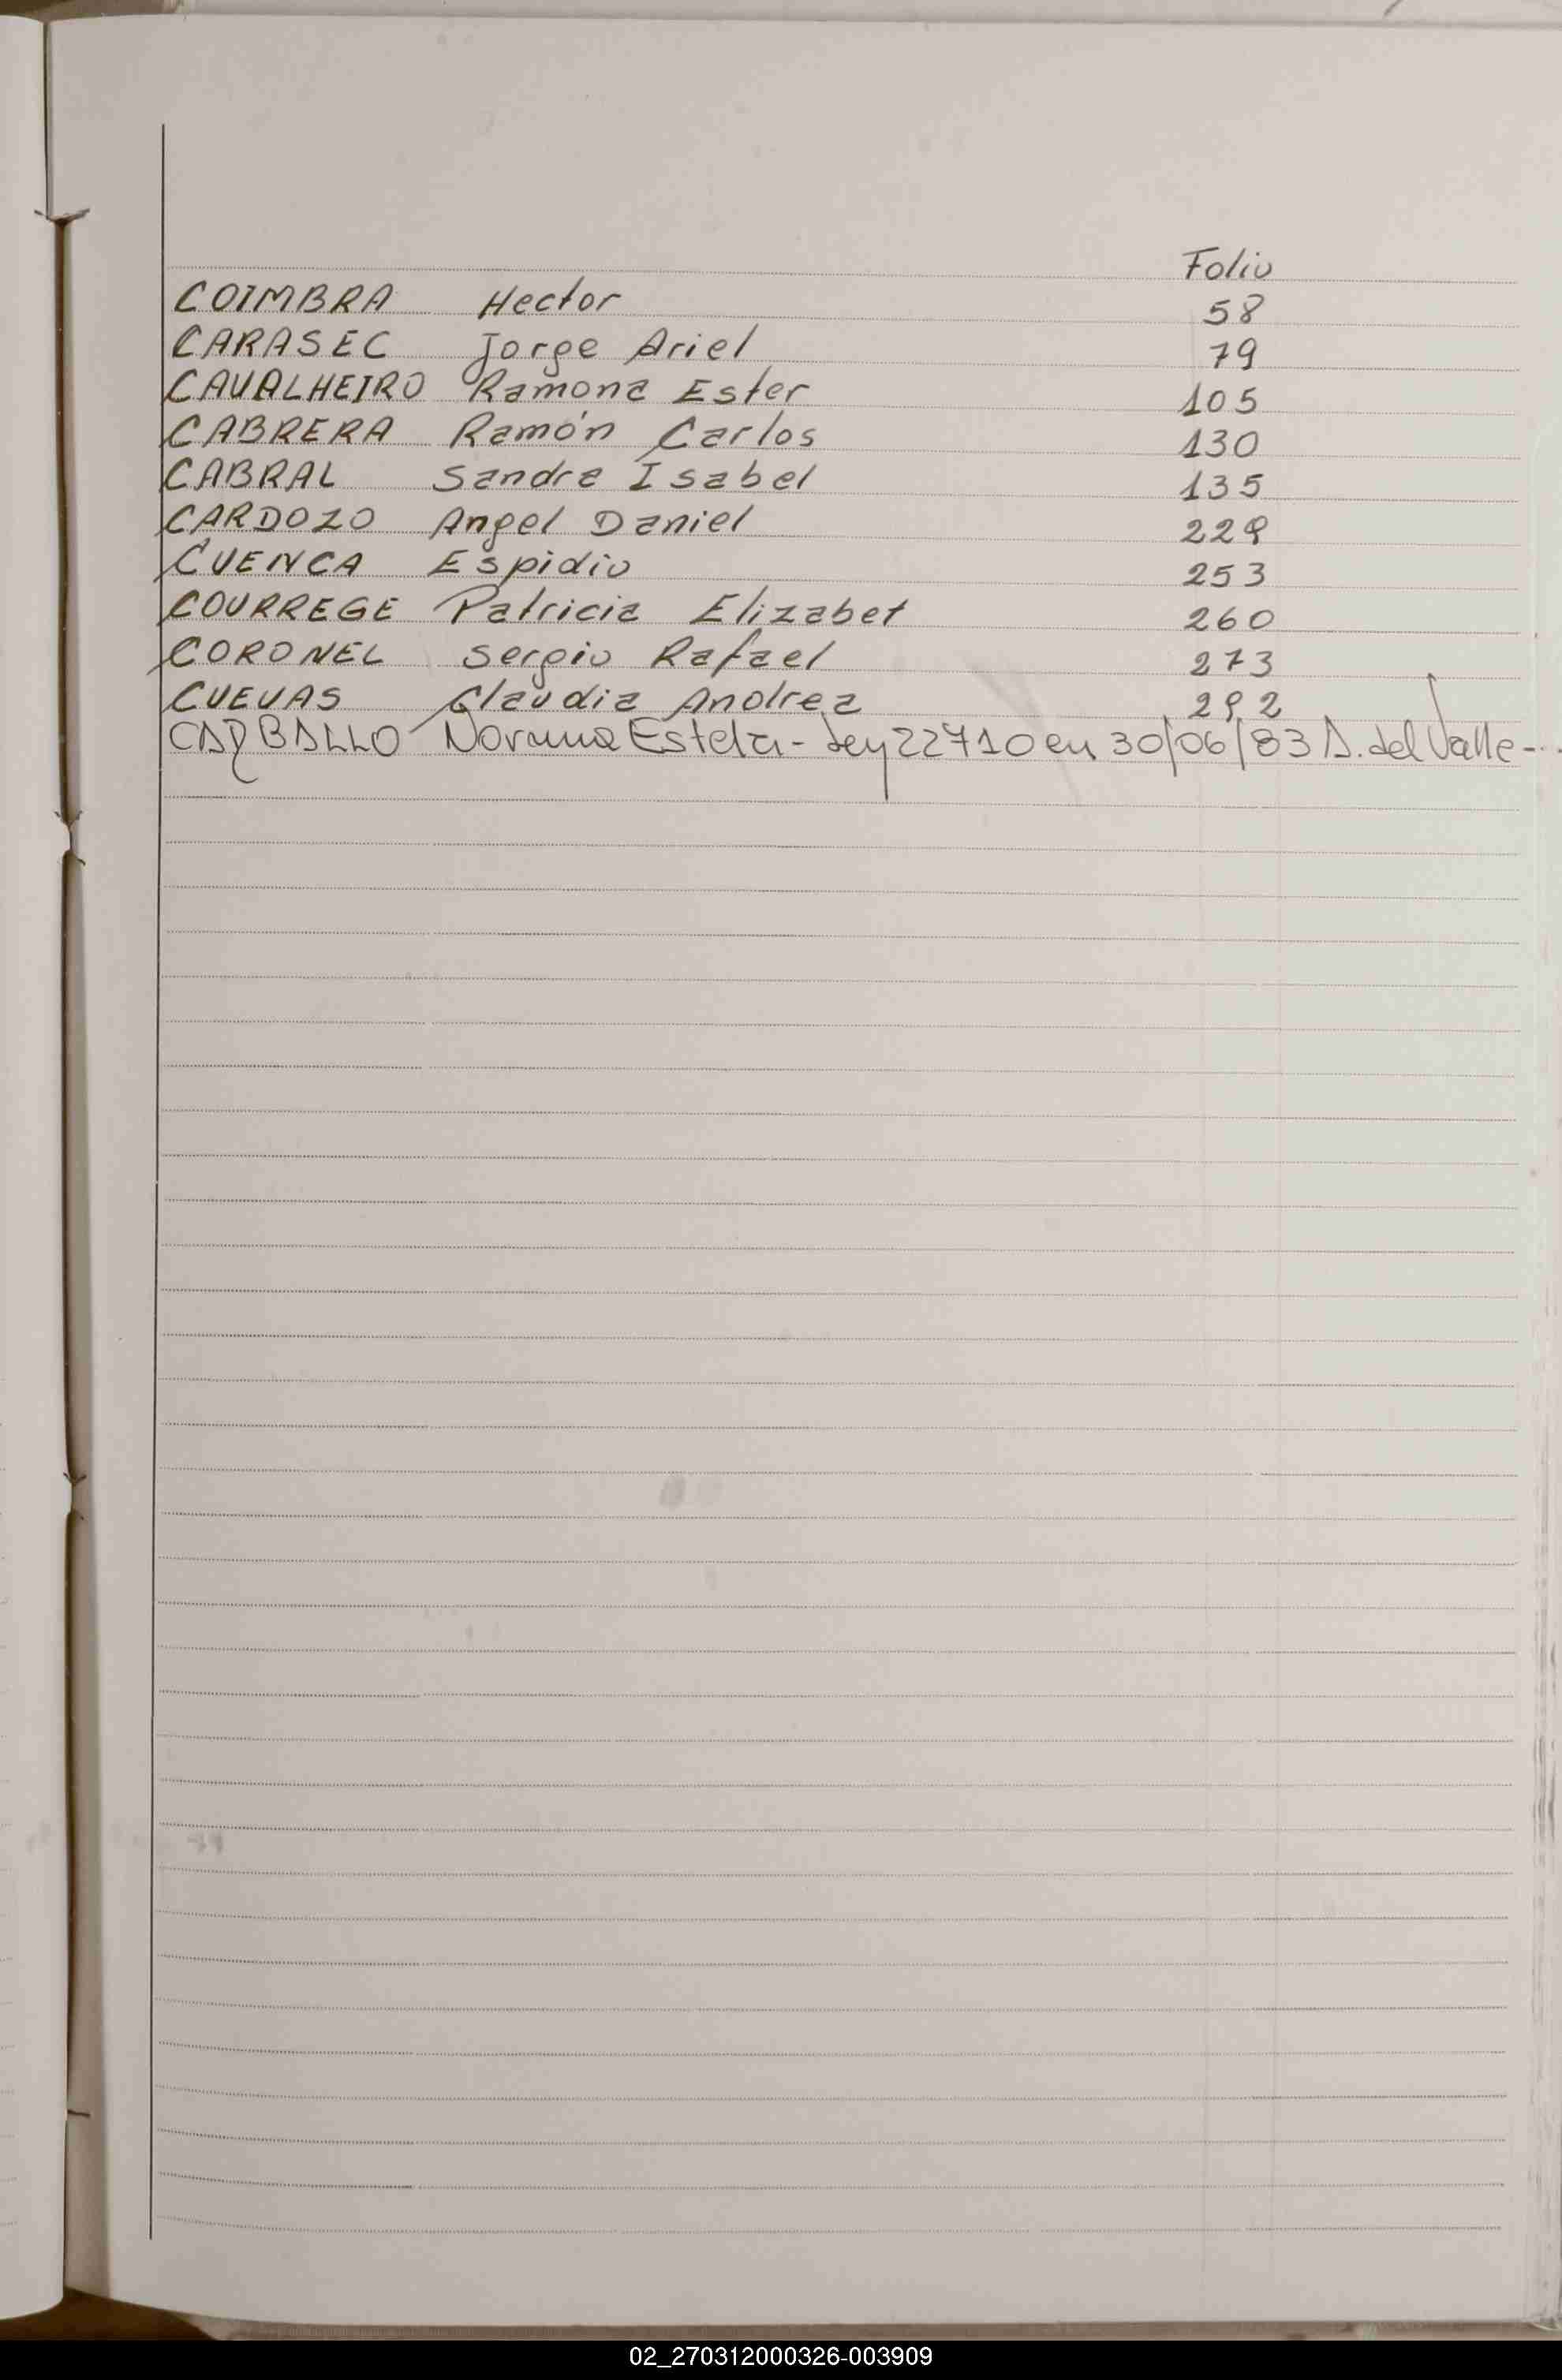 Folio
COIMBRA Hector 58
CARASEC Jorge Ariel 79
CAVALHEIRO Ramona Ester 105
CABRERA Ramón Carlos 130
CABRAL Sandra Isabel 135
CARDOZO Angel Daniel 229
CUENCA Espidio 253
COURREGE Patricia Elizabet 260
CORONEL Sergio Rafael 273
CUEVAS Claudia Andrea 292
CARBALLO Norma Estela - Ley 22710 en 30/06/83 A. del Valle -
02_270312000326-003909